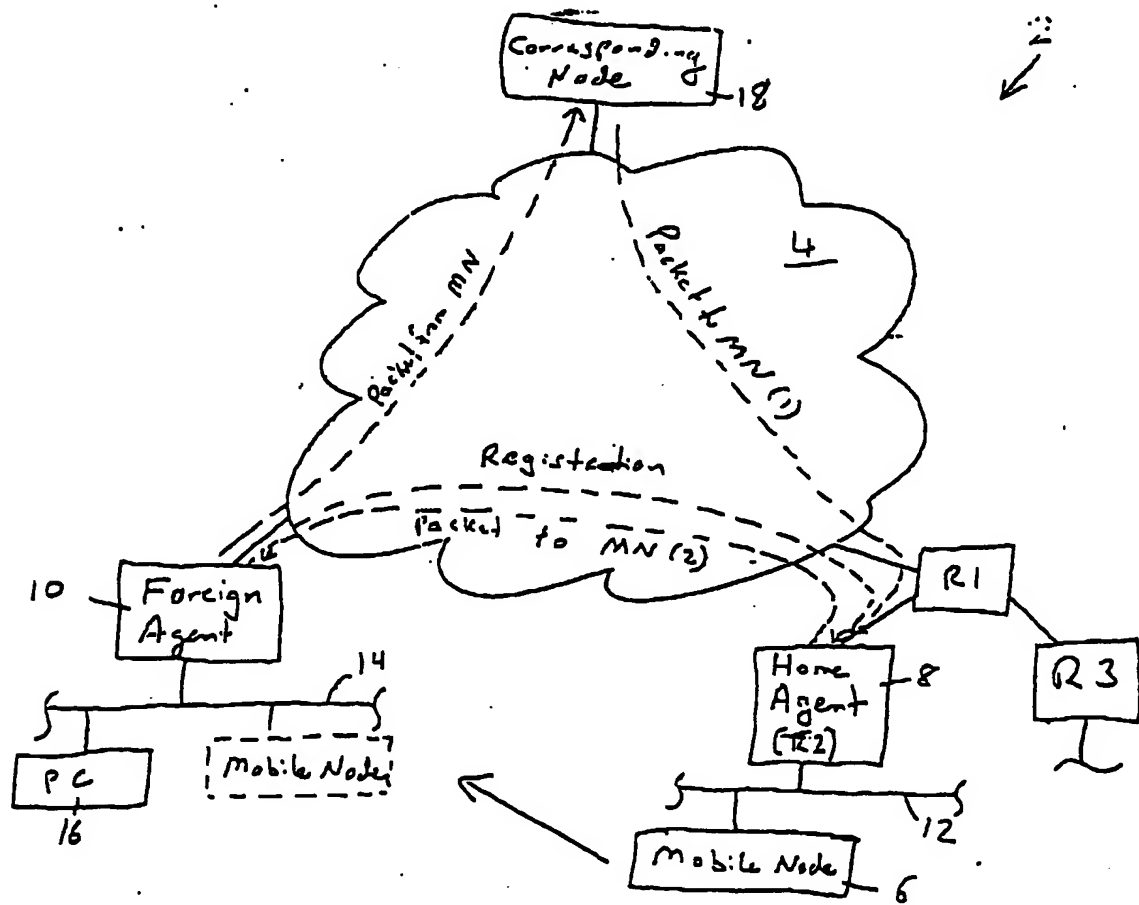 Corresponding
Node
18
2
4
Packet from MN
Packet to MN (1)
Registration
Packet to MN (2)
10
Foreign
Agent
R1
R3
Home
Agent
(R2)
8
14
PC
16
Mobile Node
12
Mobile Node
6